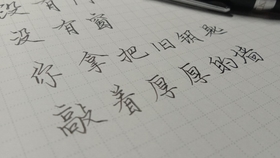 没有门
没有窗
你拿把旧钥匙
敲着厚厚的墙